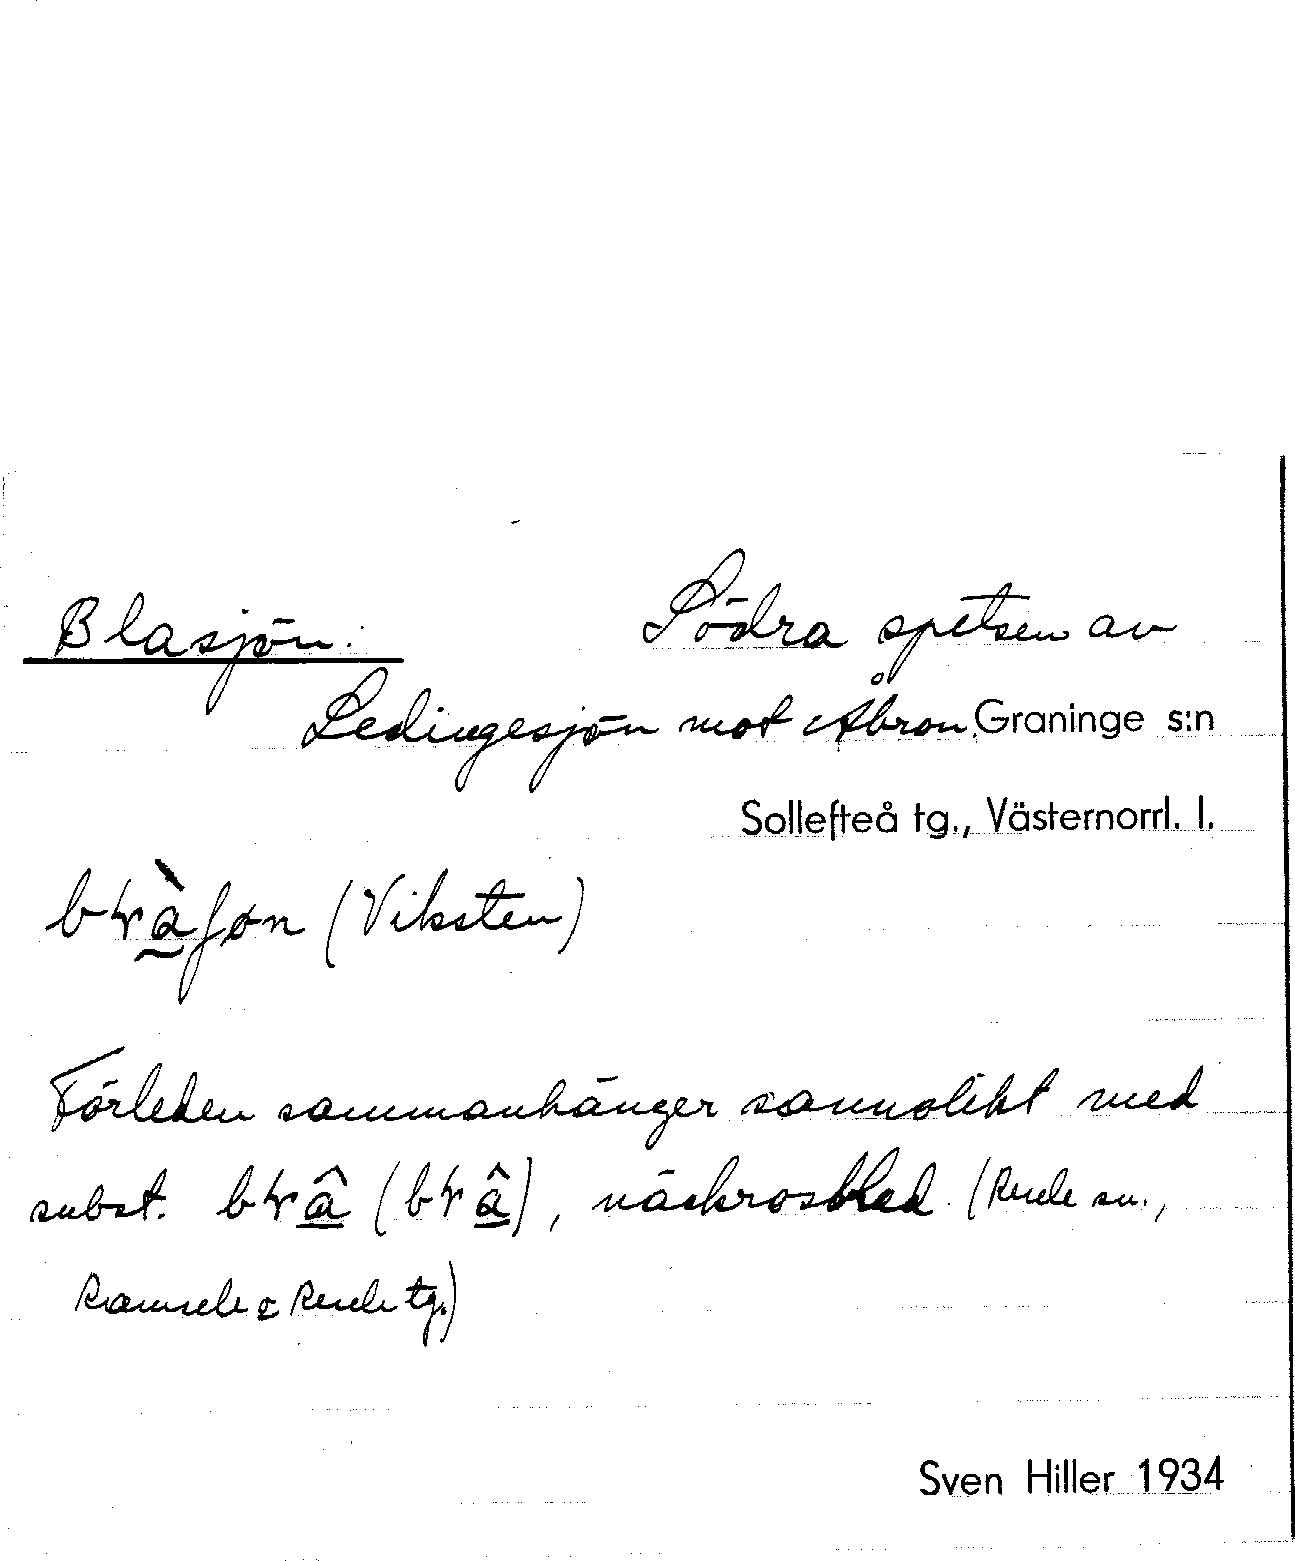 Blasjön. Södra spetsen av
Ledingesjön mot Åbron. Graninge s:n
Sollefteå tg., Västernorrl. l.
(Viksten)
Förleden sammanhänger sannolikt med
subst. näckrosblad (Resele sn.,
Ramsele o Resele tg.)
Sven Hiller 1934